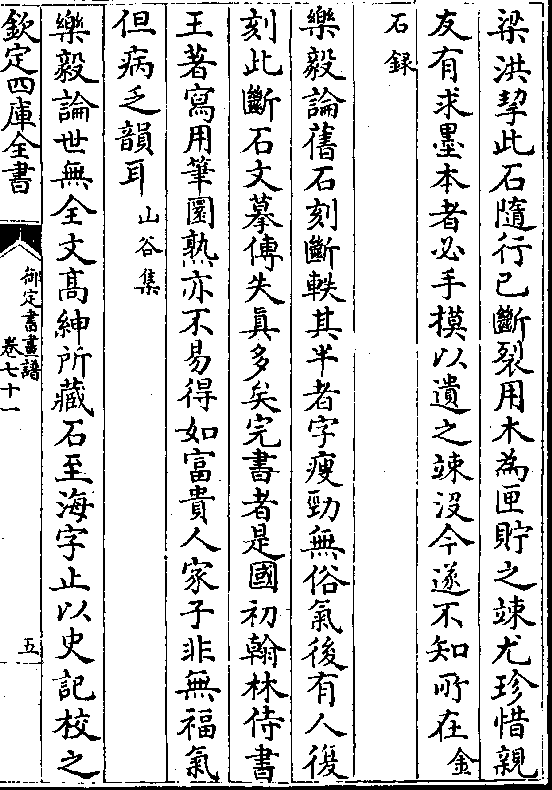 梁洪挈此石隨行已斷裂用木為匣貯之竦尤珍惜親
友有求墨本者必手模以遺之竦沒今遂不知所在金
石録
樂毅論舊石刻斷軼其半者字瘦勁無俗氣後有人復
刻此斷石文摹傳失真多矣完書者是國初翰林侍書
王著寫用筆圜熟亦不易得如富貴人家子非無福氣
但病乏韻耳山谷集
樂毅論世無全文髙紳所藏石至海字止以史記校之
欽定四庫全書
御定書畫譜
卷七十一
五